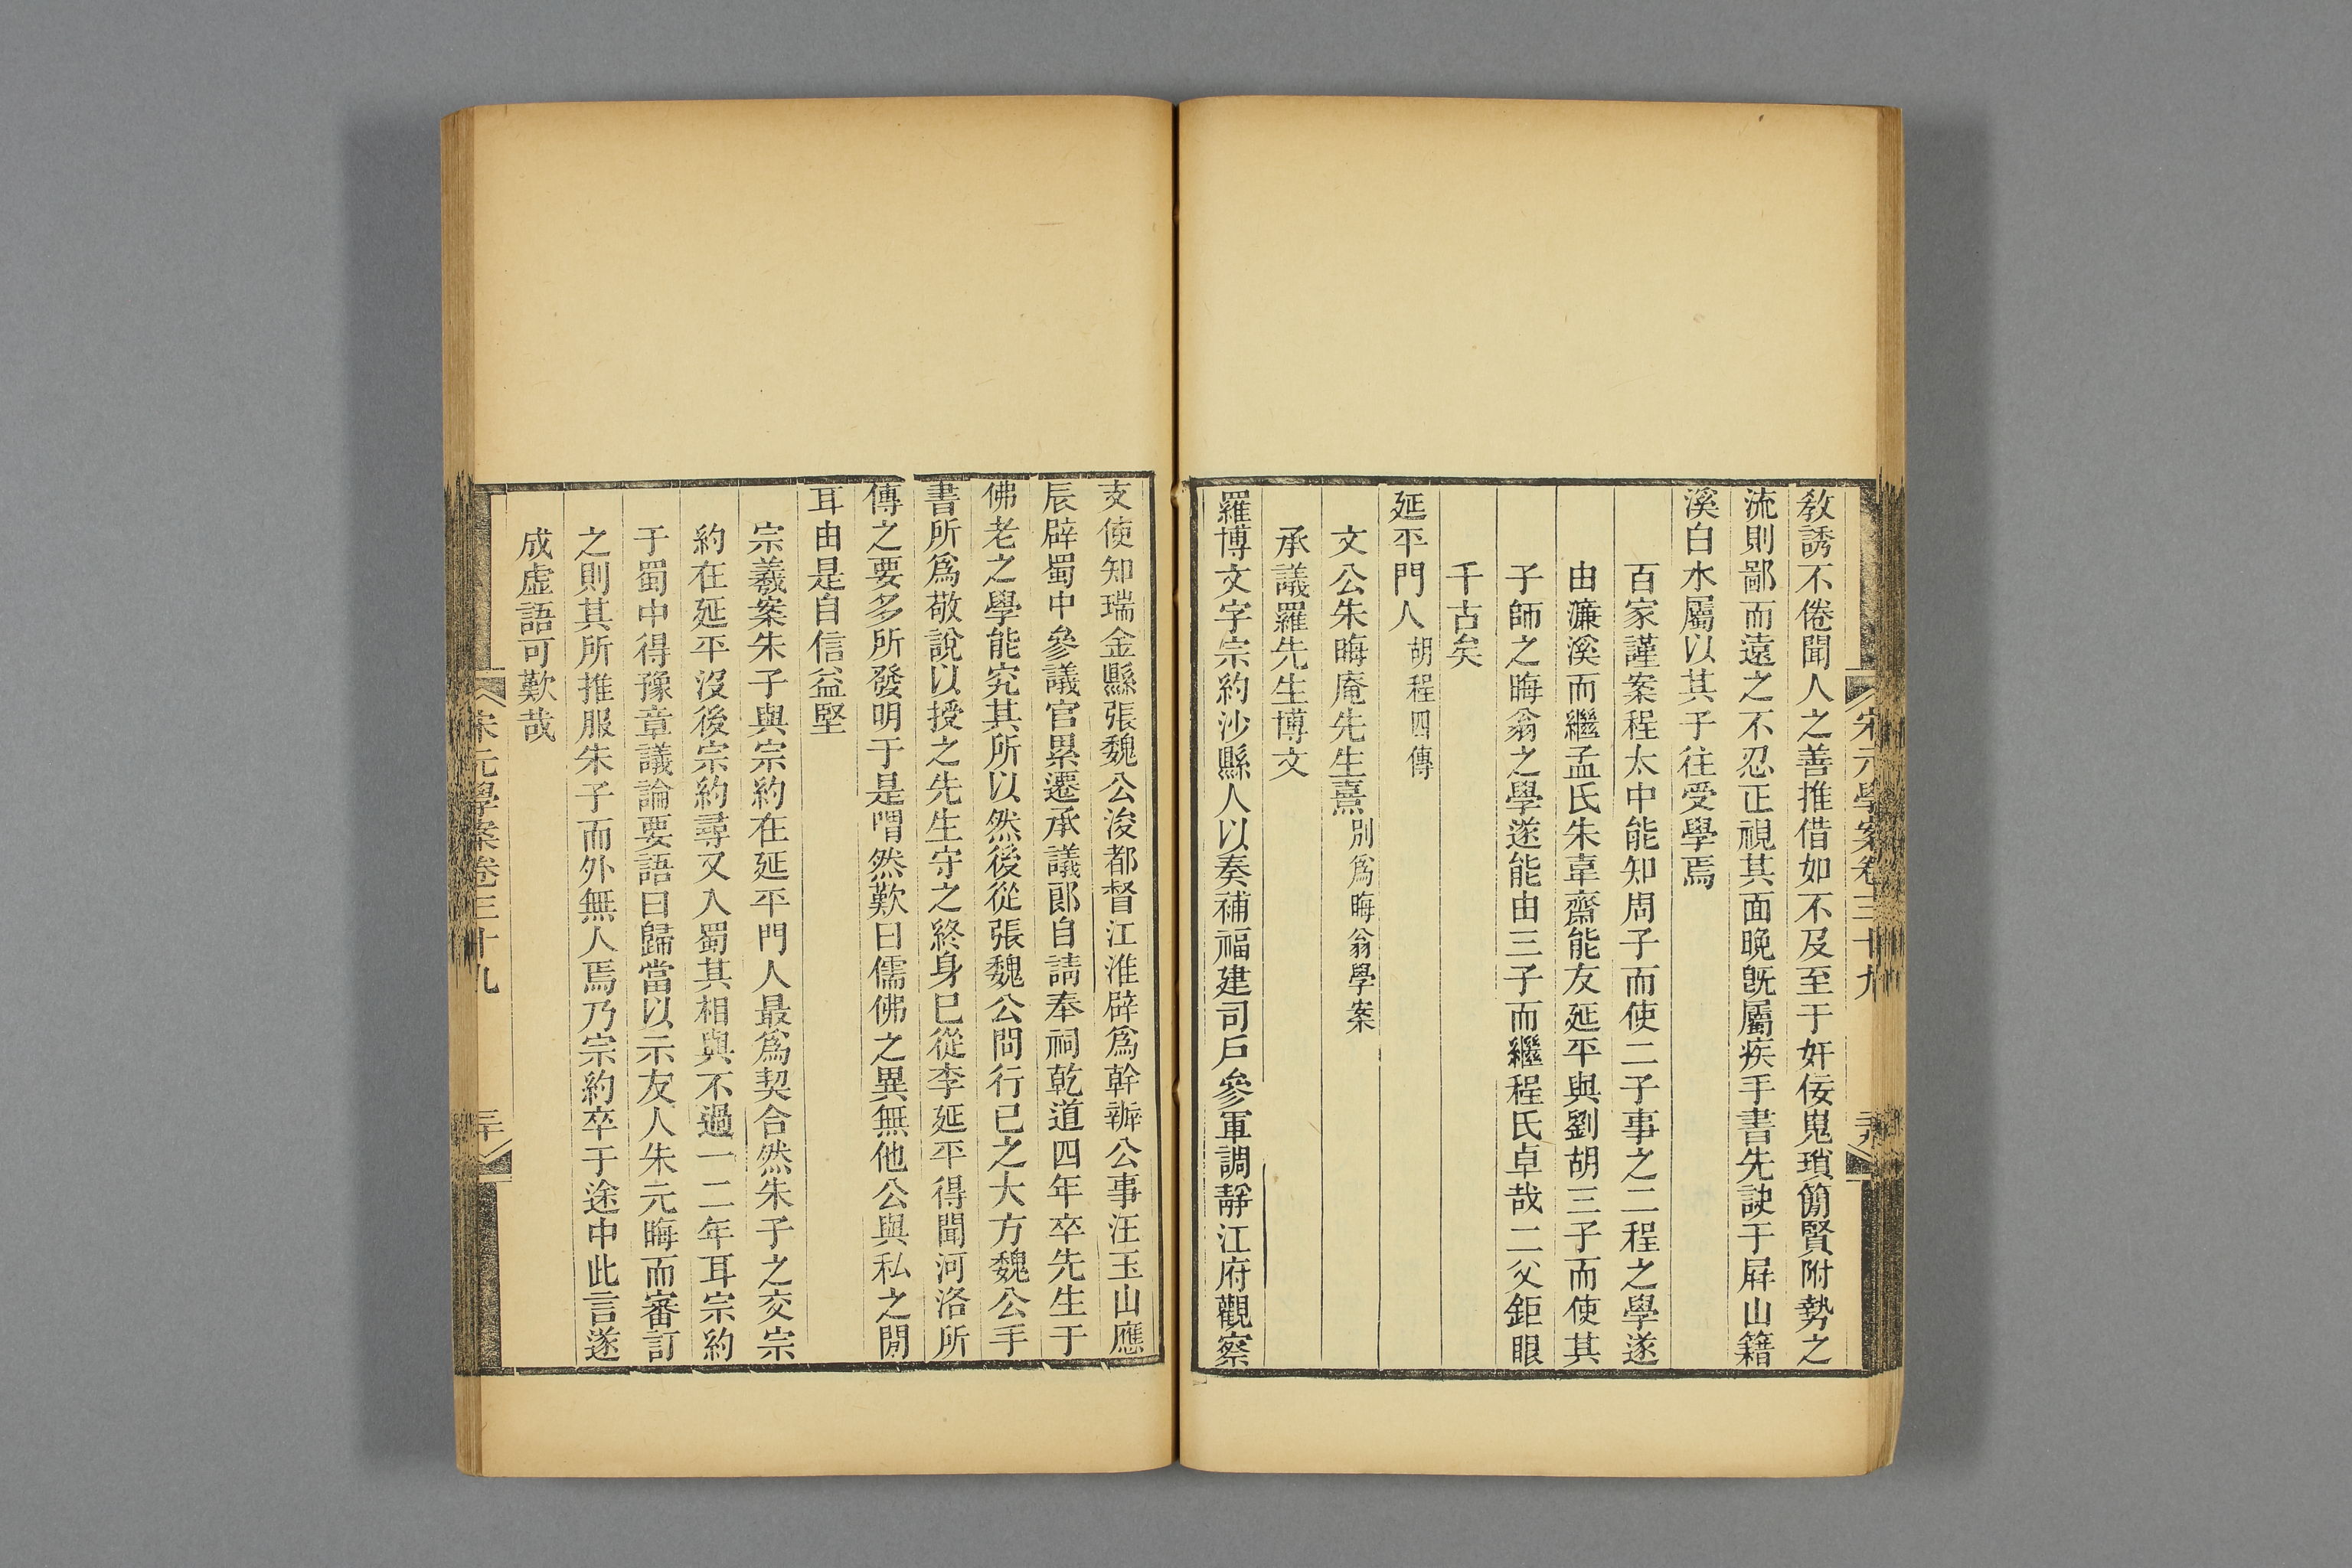 宋元學案卷三十九
教誘不倦聞人之善推借如不及至于奸佞嵬瑣簡賢附勢之
流則鄙而遠之不忍正視其面晩旣屬疾手書先訣于屏山籍
溪白水屬以其子往受學焉
百家謹案程太中能知周子而使二子事之二程之學遂
由濂溪而繼孟氏朱韋齋能友延平與劉胡三子而使其
子師之晦翁之學遂能由三子而繼程氏卓哉二父鉅眼
千古矣
延平門人胡程四傳
文公朱晦庵先生熹別爲晦翁學案
承議羅先生博文
羅博文字宗約沙縣人以奏補福建司戶參軍調靜江府觀察
支使知瑞金縣張魏公浚都督江淮辟爲幹辦公事汪玉山應
辰辟蜀中參議官累遷承議郞自請奉祠乾道四年卒先生于
佛老之學能究其所以然後從張魏公問行已之大方魏公手
書所爲敬說以授之先生守之終身已從李延平得聞河洛所
傳之要多所發明于是喟然歎曰儒佛之異無他公與私之閒
耳由是自信益堅
宗羲案朱子與宗約在延平門人最爲契合然朱子之交宗
約在延平沒後宗約尋又入蜀其相與不過一二年耳宗約
于蜀中得豫章議論要語曰歸當以示友人朱元晦而審訂
之則其所推服朱子而外無人焉乃宗約卒于途中此言遂
成虛語可歎哉
宋元學案卷三十九
三十